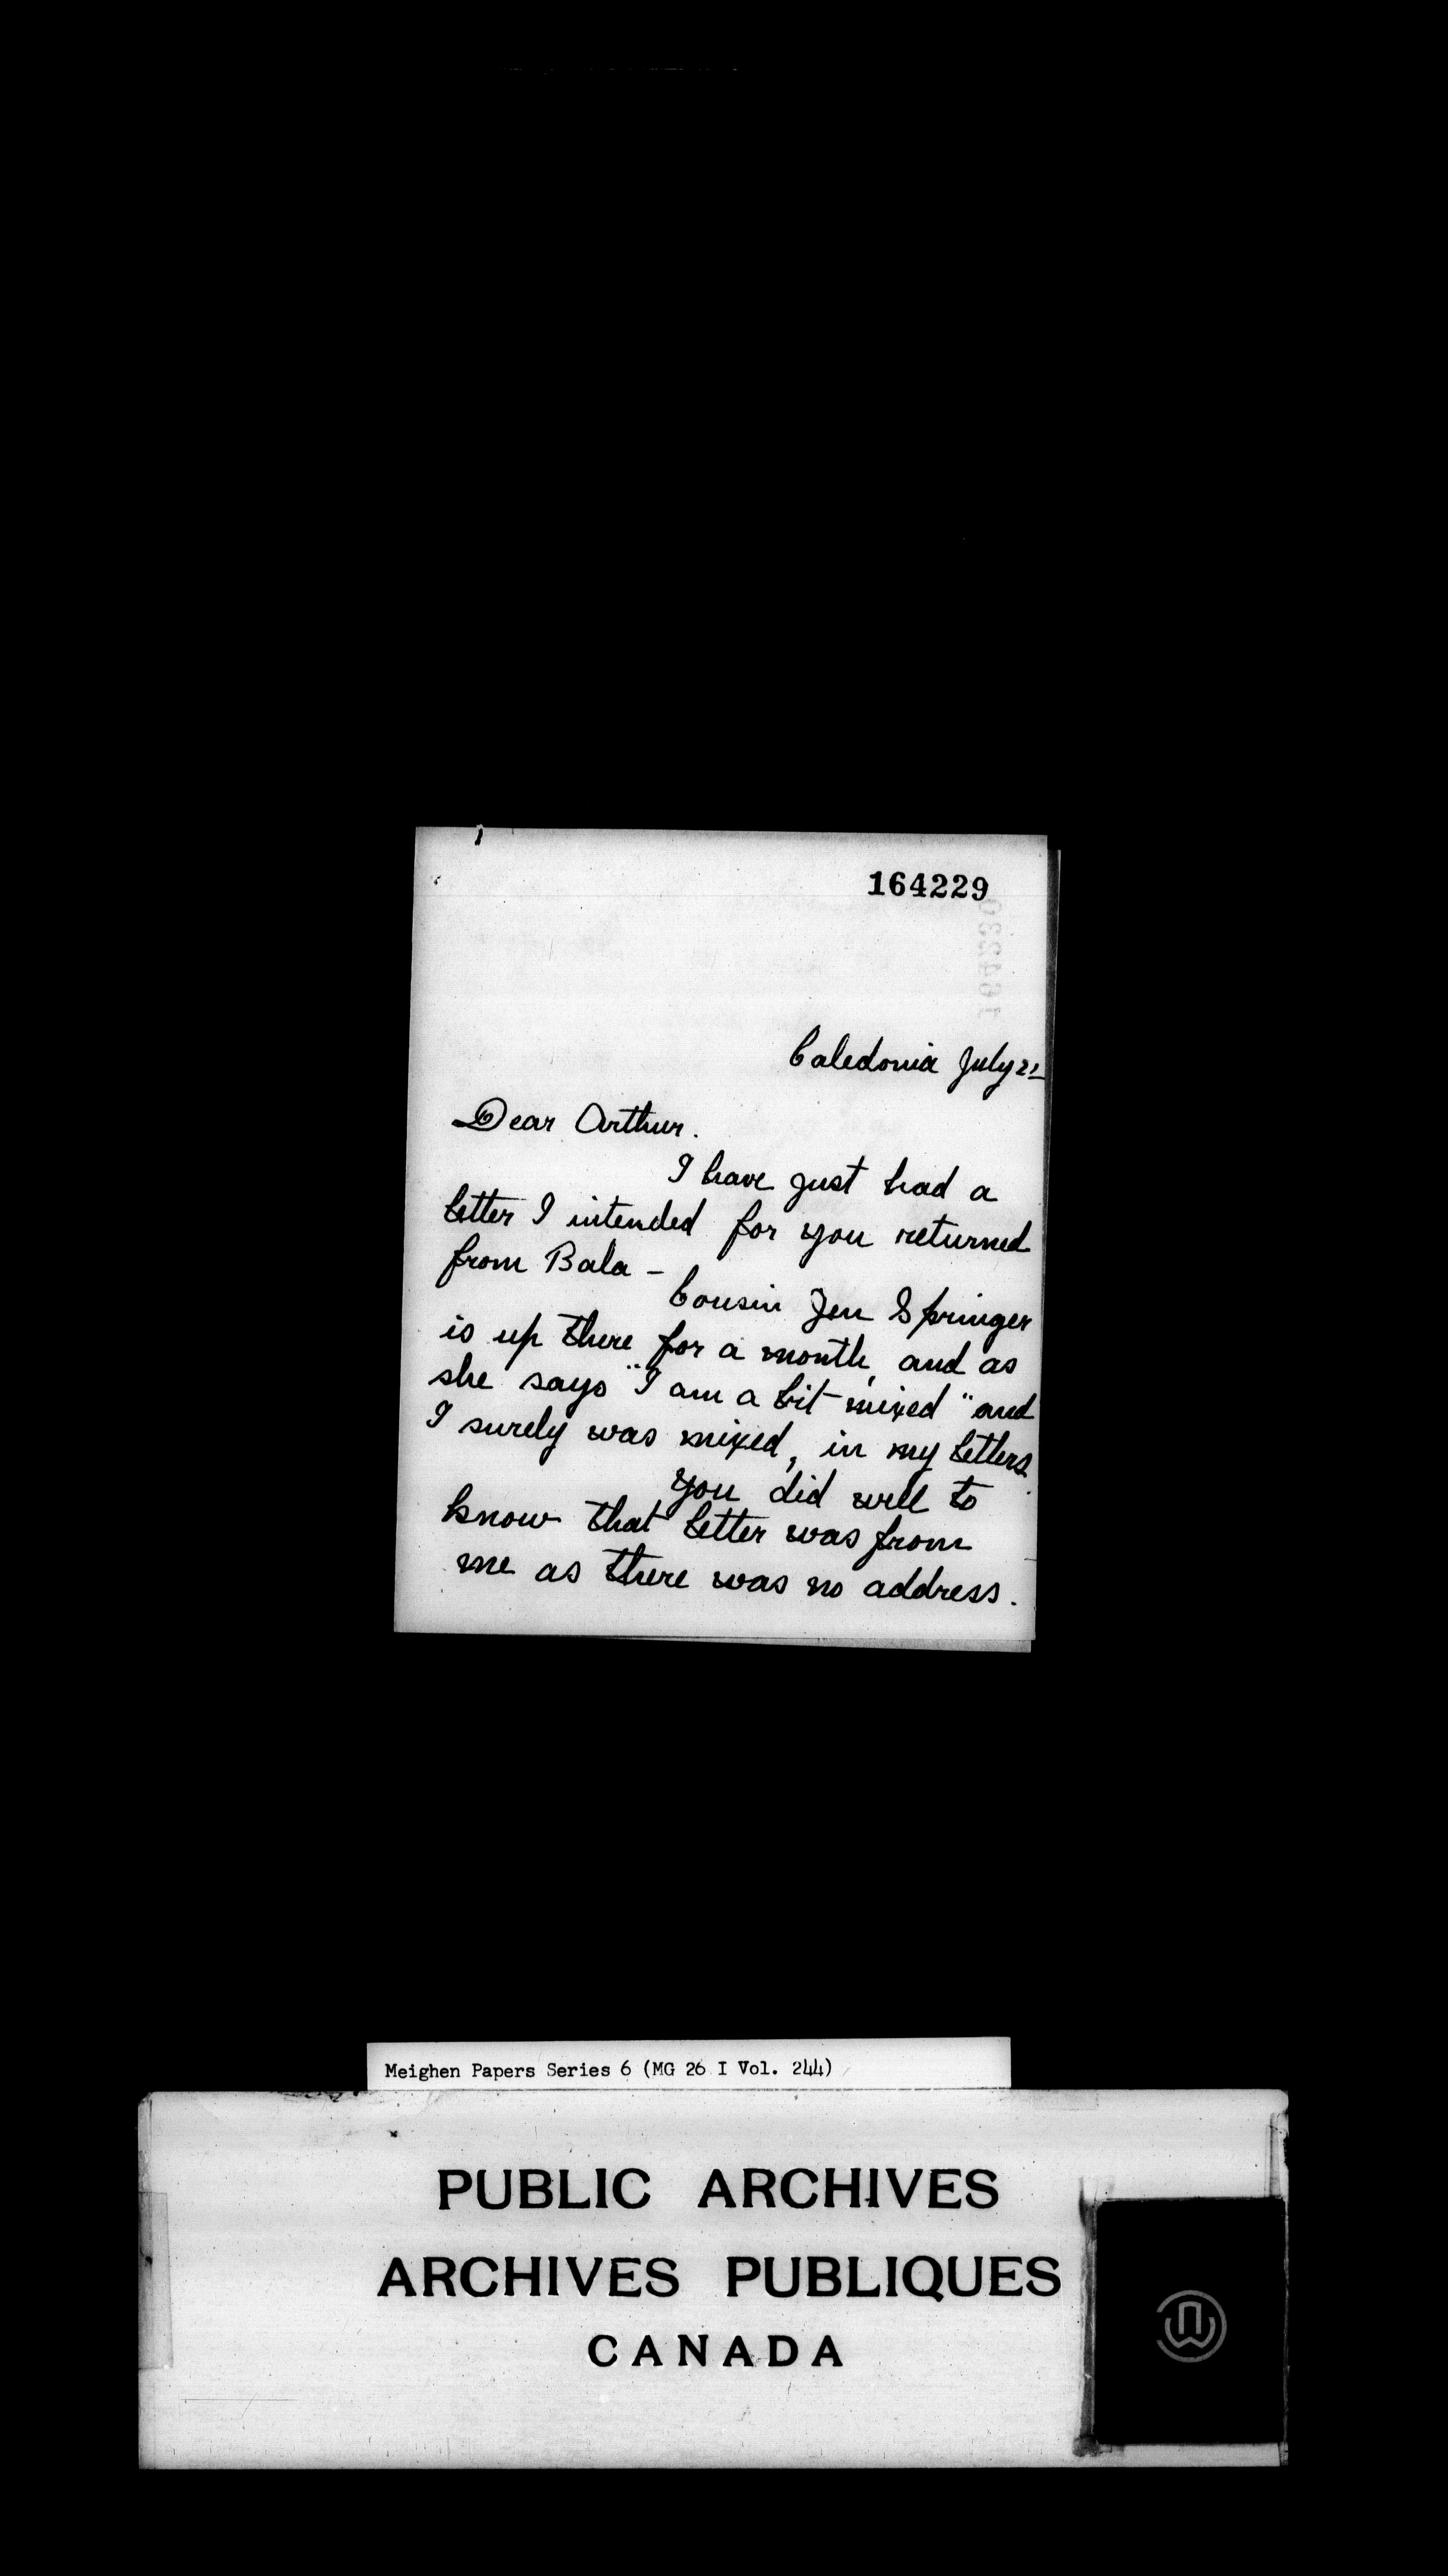 164229
164230
Caledonia July 21
Dear Arthur.
I have just had a
letter I intended for you returned
from Bala –
Cousin Jen Springer
is up there for a month, and as
she says "I am a bit mixed" and
I surely was mixed, in my letters.
You did well to
know that letter was from
me as there was no address.
Meighen Papers Series 6 (MG 26 I Vol. 244)
PUBLIC ARCHIVES
ARCHIVES PUBLIQUES
CANADA